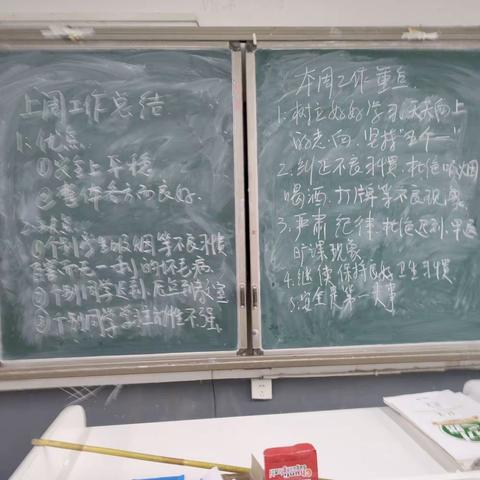 上周工作总结
1、优点
①安全上平稳
②整体各方面良好.
2、缺点
①个别学生吸烟等不良习惯
的坏毛病.
②个别同学迟到
③个别同学学习主动性不强.
本周工作重点
1.树立好好学习,天天向上
的志向,坚持"五个一"
2.纠正不良习惯,杜绝吸烟
喝酒,打牌等不良现象
3.严肃纪律,杜绝迟到,早退
旷课现象
4.继续保持良好卫生习惯
5.安全是第一大事